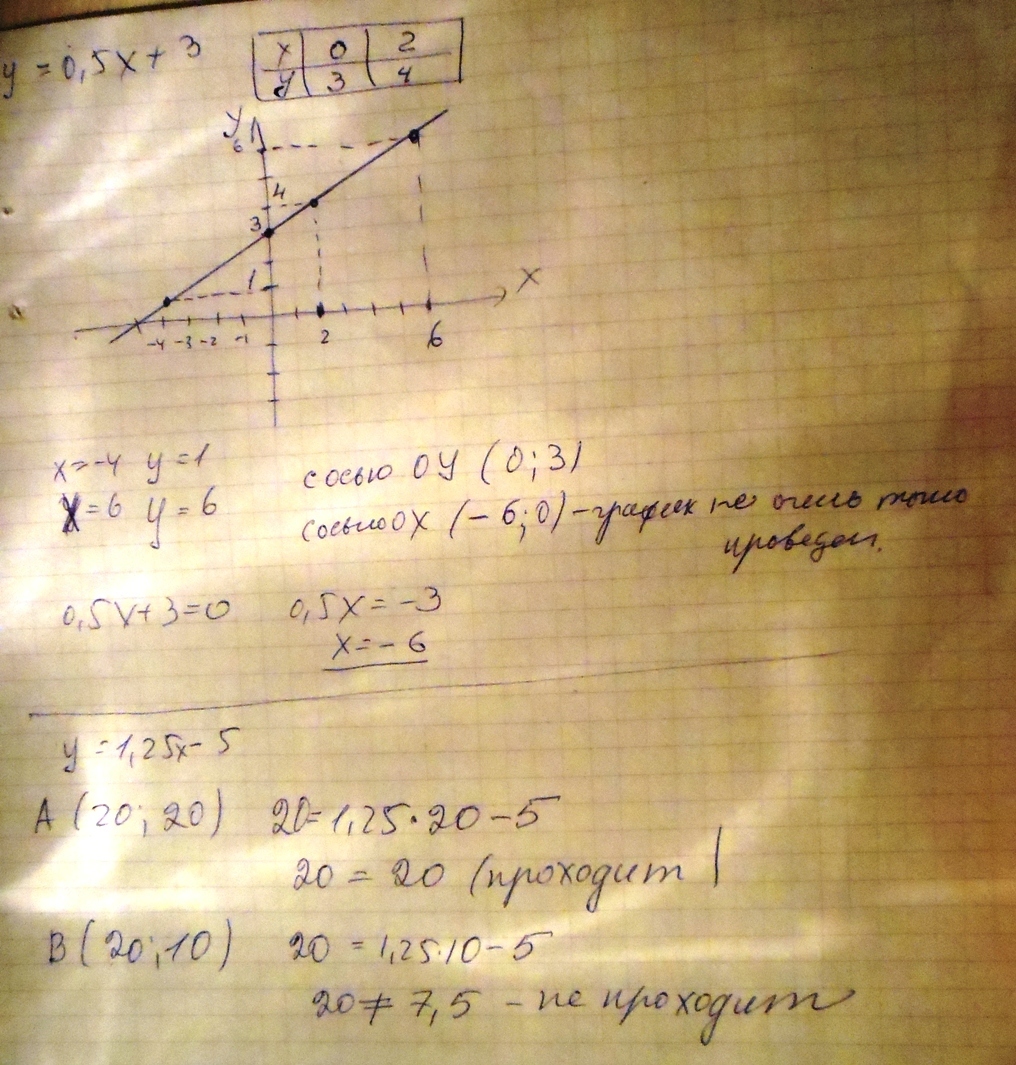 y = 0,5x + 3
x 0 2
y 3 4
y
6
4
3
1
x
-4 -3 -2 -1 2 6
x=-4 y=1
x=6 y=6
с осью OY (0;3)
с осью OX (-6;0) - график не очень точно
проведен.
0,5x+3=0 0,5x=-3
x=-6
y=1,25x-5
A (20; 20) 20=1,25·20-5
20 = 20 (проходит)
B (20;10) 20 = 1,25·10-5
20 ≠ 7,5 - не проходит